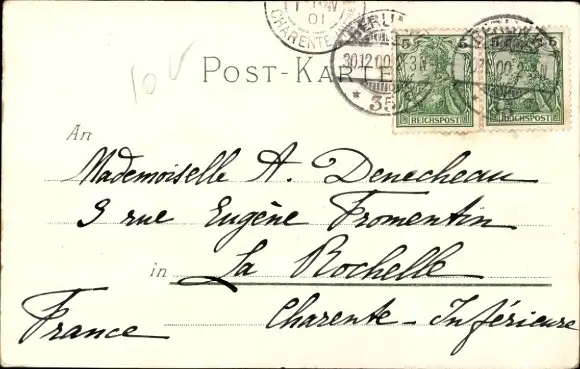 01
CHARENTE
BERLIN
30.12.00
35
5 5
REICHSPOST
5
REICHSPOST
BERLIN
10
POST-KARTE
An
Mademoiselle A. Denecheau
9 rue Eugène Fromentin
in La Rochelle
France Charente-Inférieure